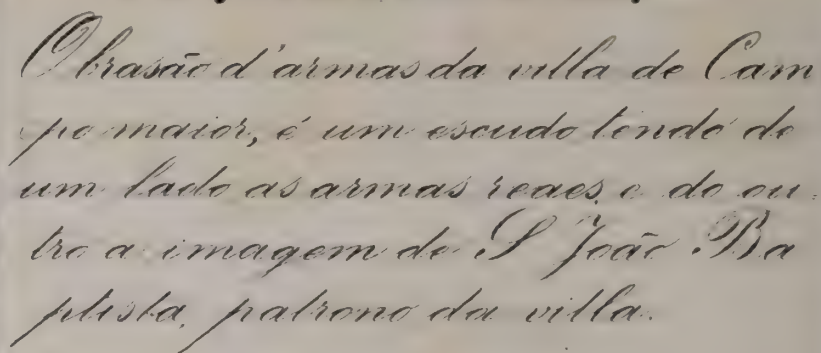 O brasão d'armas da villa de Cam
po maior, é um escudo tendo de
um lado as armas reaes, e do ou-
tro a imagem de S João Ba
ptista, patrono da villa.